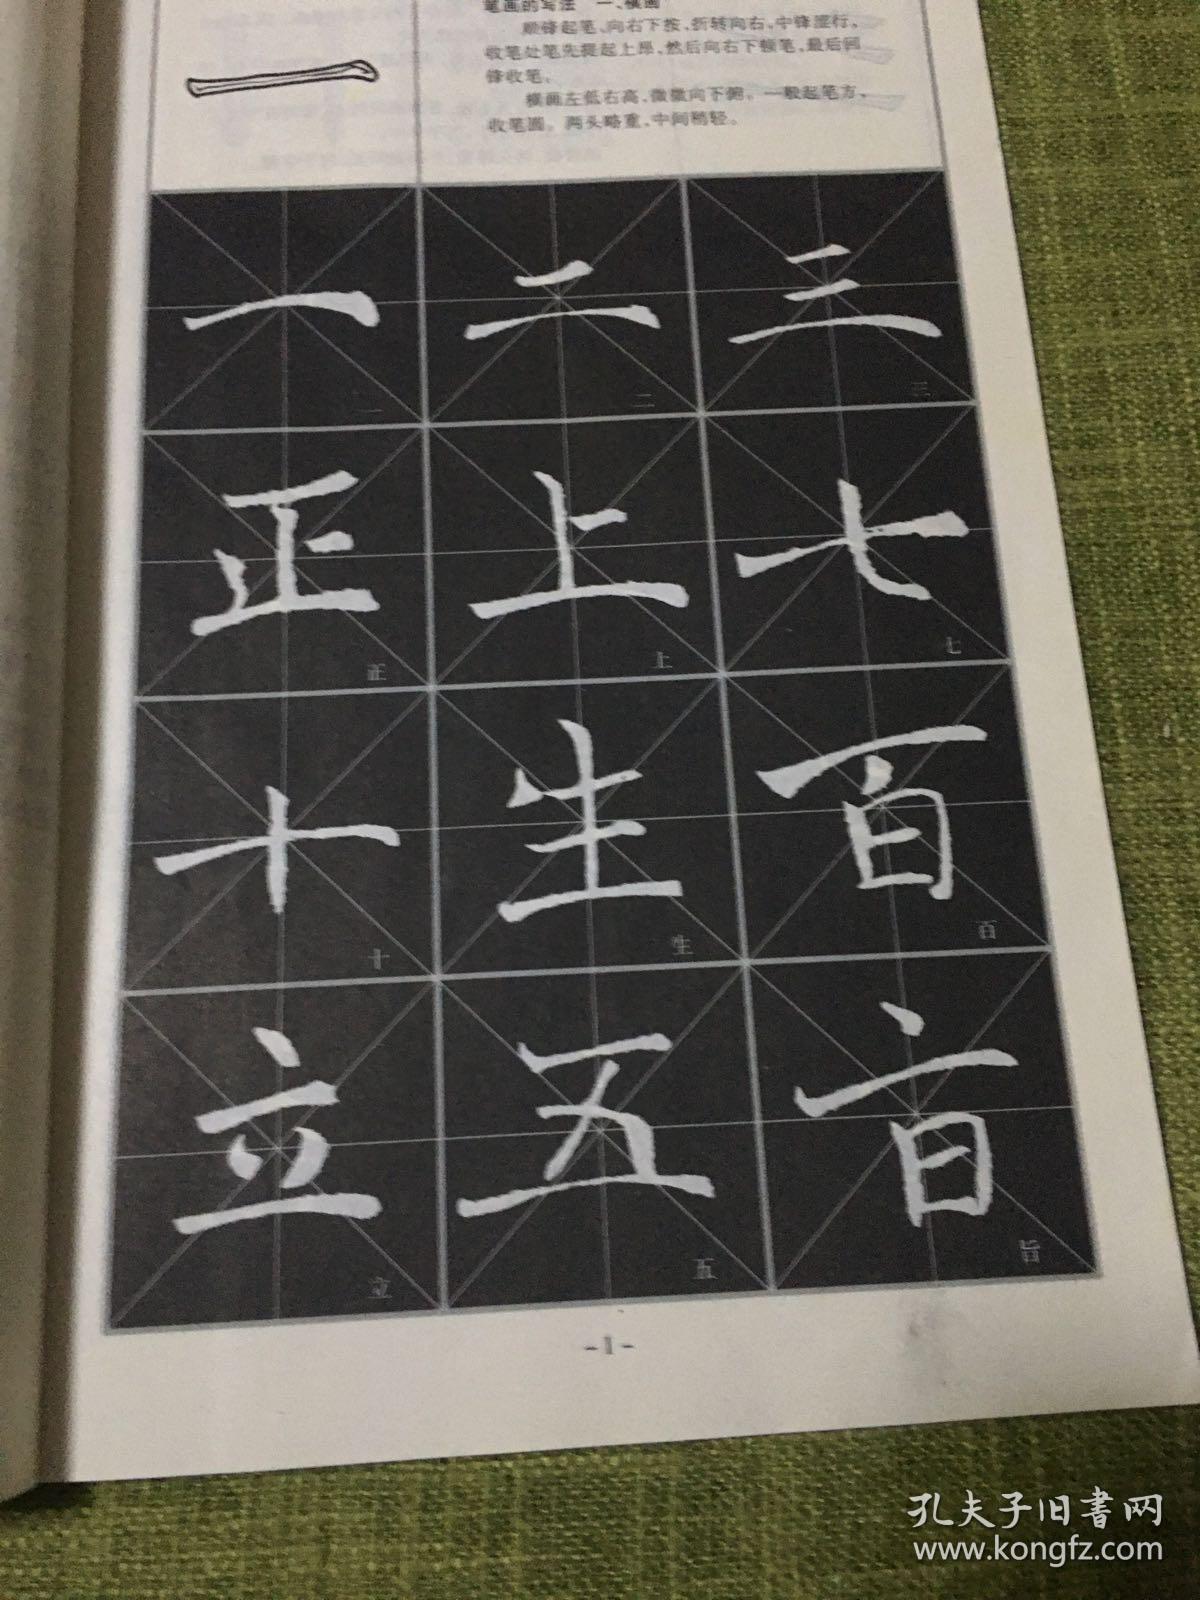 笔画的写法 一、横画
顺锋起笔、向右下按,折转向右,中锋涩行,
收笔处笔先提起上昂,然后向右下顿笔,最后回
锋收笔。
横画左低右高,微微向下俯。一般起笔方,
收笔圆。两头略重,中间稍轻。
一 二 三
一 二 三
正 上 七
正 上 七
十 生 百
十 生 百
立 五 旨
立 五 旨
-1-
孔夫子旧書网
www.kongfz.com